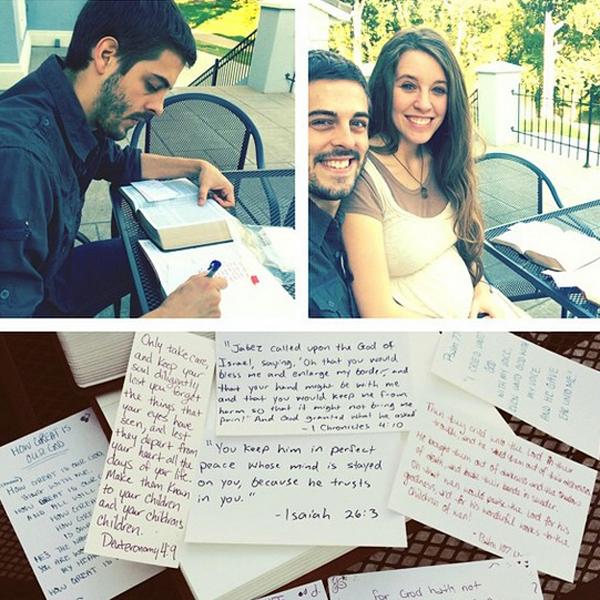 HOW GREAT IS
OUR GOD
HOW GREAT IS OUR GOD
HOW GREAT IS OUR
AND ALL WILL
HOW GREAT
Only take care,
and keep your
soul diligently
lest you forget
the things that
your eyes have
seen, and lest
they depart from
your heart all the
days of your life
Make them known
to your children
and your childrens
children.
Deuteronomy 4:9
"Jabez called upon the God of
Israel, saying, 'Oh that you would
bless me and enlarge my border, and
that your hand might be with me
and that you would keep me from
harm so that it might not bring me
pain!' And God granted what he asked"
-1 Chronicles 4:10
"You keep him in perfect
peace whose mind is stayed
on you, because he trusts
in you."
-Isaiah 26:3
Psalm 77
I CRIED UNTO
GOD
WITH MY VOICE
EVEN UNTO GOD WITH
MY VOICE
AND HE GAVE
EAR UNTO ME
Then they cried unto the Lord in their
trouble, and he saved them out of their distresses
He brought them out of darkness and the shadow
of death and brake their bands in sunder.
Oh that men would praise the Lord for his
goodness, and for his wonderful works to the
children of men!
-Psalm 107
for God hath not